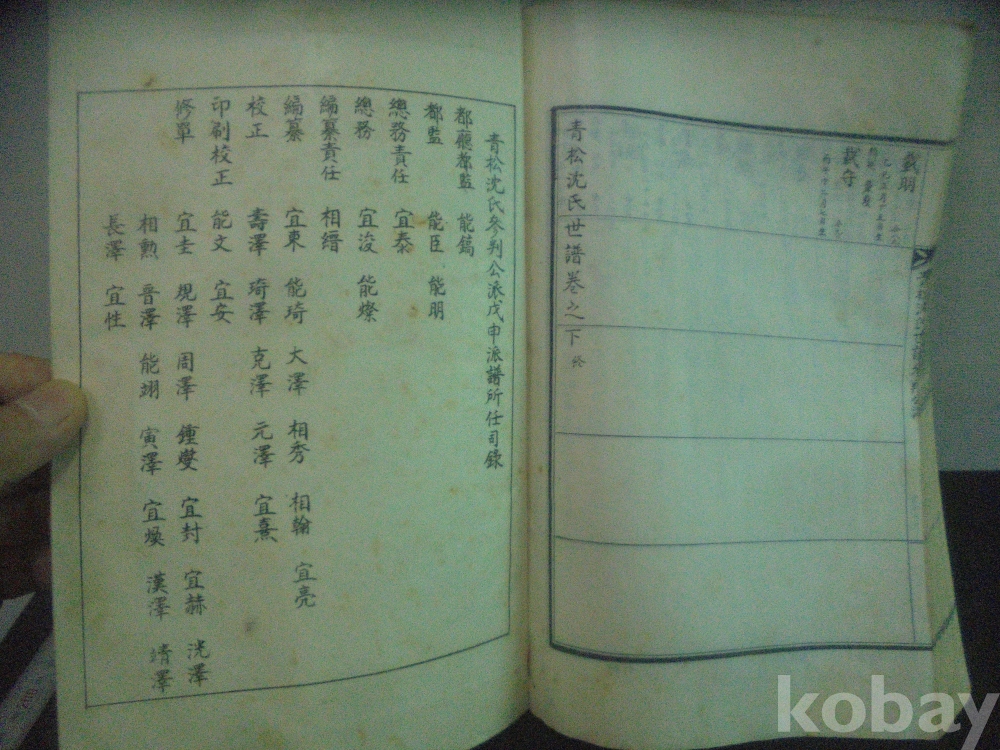 試明
試守
青松沈氏世譜卷之下 終
青松沈氏參判公派戊申派譜所任司錄
都廳都監 能鎬
都監 能臣 能明
總務責任 宜泰
總務 宜浚 能燦
編纂責任 相縉
編纂 宜東 能琦 大澤 相秀 相翰 宜亮
校正 壽澤 琦澤 克澤 元澤 宜熹
印刷校正 能文 宜安
修單 宜圭 規澤 周澤 鍾燮 宜封 宜赫 洸澤
相勲 晉澤 能翊 寅澤 宜煥 漢澤 靖澤
長澤 宜性
kobay